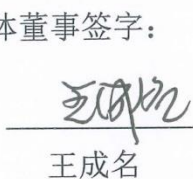 体董事签字：
王成名
王成名